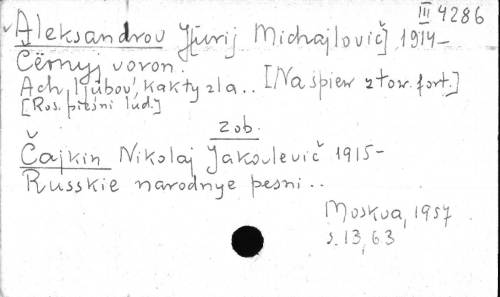 III 4286
Aleksandrov Jurij Michajlovič] 1914-
Čërnyj voron.
Ach, ljubov', kak ty zla.. [Na śpiew z tow. fort.]
[Ros. pieśni lud.]
zob.
Čajkin Nikolaj Jakovlevič 1915-
Russkie narodnye pesni..
Moskva, 1957
s. 13, 63